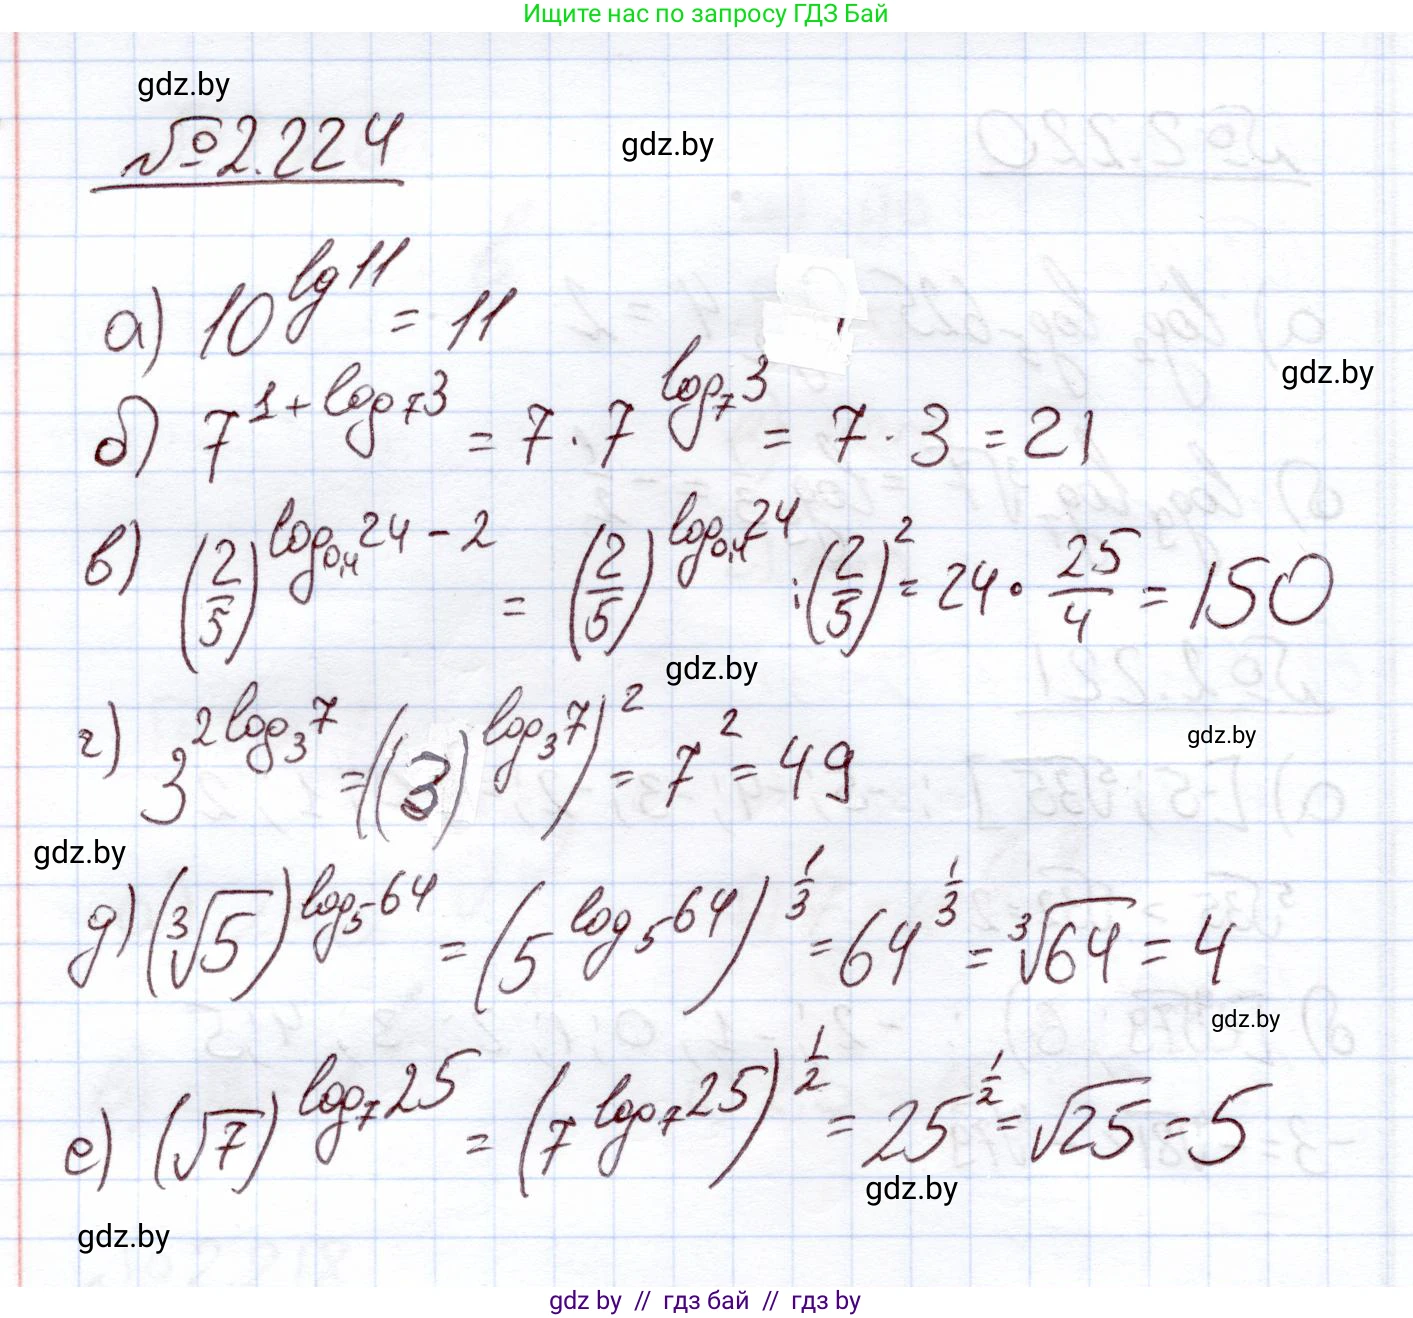 Ищите нас по запросу ГДЗ Бай
gdz.by
№2.224
gdz.by
а) 10^{lg 11} = 11
gdz.by
б) 7^{1+log_7 3} = 7 · 7^{log_7 3} = 7 · 3 = 21
в) (2/5)^{log_{0,4} 24 - 2} = (2/5)^{log_{0,4} 24} : (2/5)^2 = 24 · 25/4 = 150
gdz.by
gdz.by
г) 3^{2log_3 7} = ((3)^{log_3 7})^2 = 7^2 = 49
gdz.by
д) (∛5)^{log_5 64} = (5^{log_5 64})^{1/3} = 64^{1/3} = ∛64 = 4
gdz.by
е) (√7)^{log_7 25} = (7^{log_7 25})^{1/2} = 25^{1/2} = √25 = 5
gdz.by
gdz.by
gdz by // гдз бай // гдз by